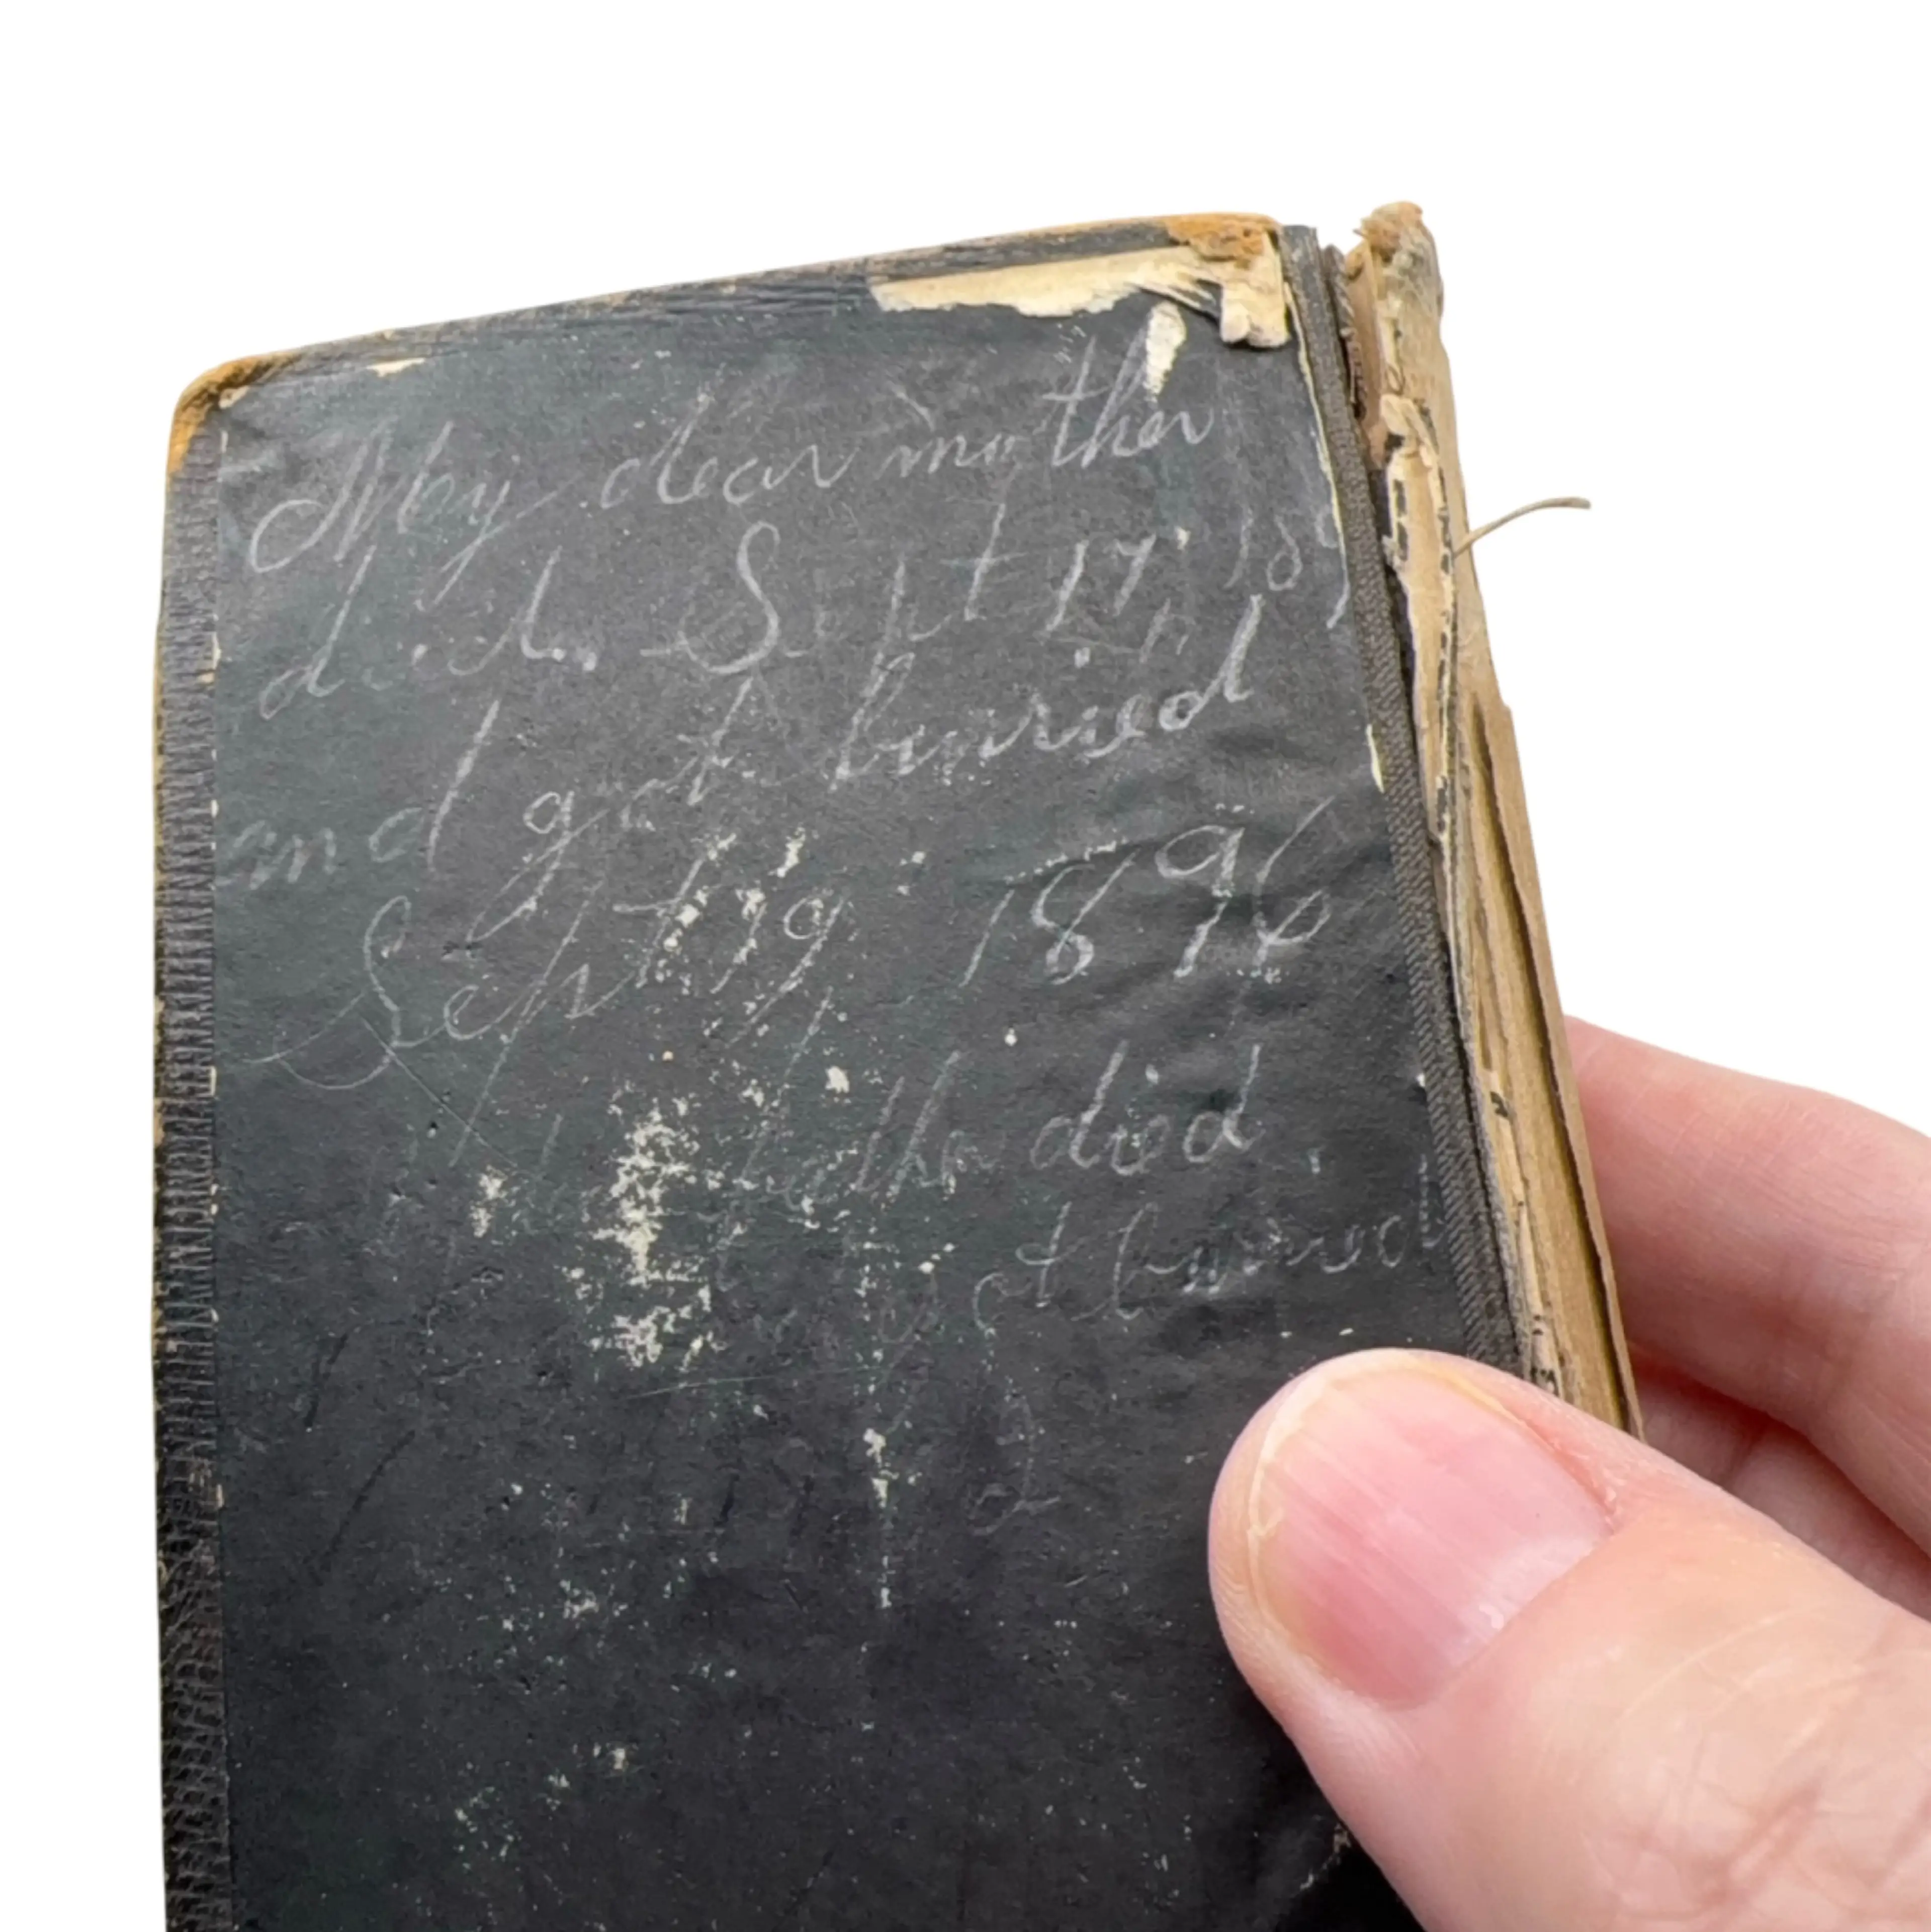 My dear mother
died. Sept 17 189
and got burried
Sept 19, 1896
father died
got burried
2